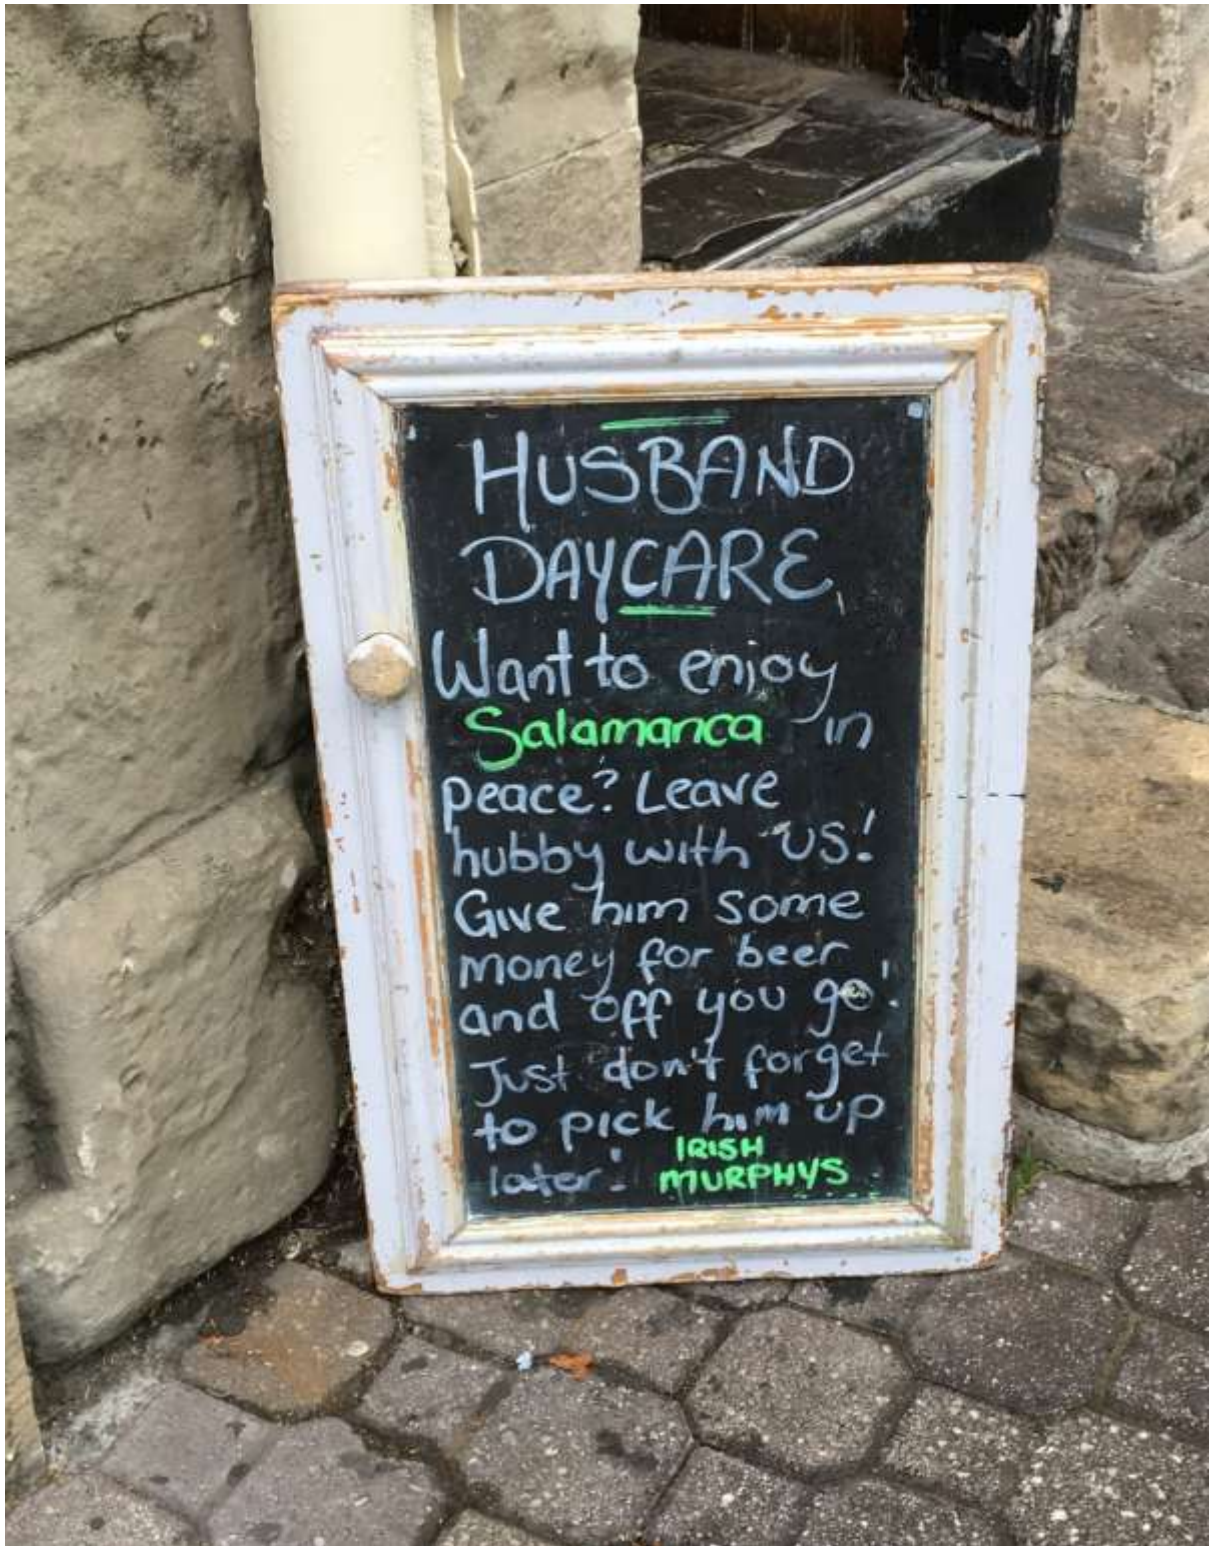 HUSBAND
DAYCARE
Want to enjoy
Salamanca in
peace? Leave
hubby with US!
Give him some
money for beer
and off you go!
Just don't forget
to pick him up
later! IRISH
MURPHYS